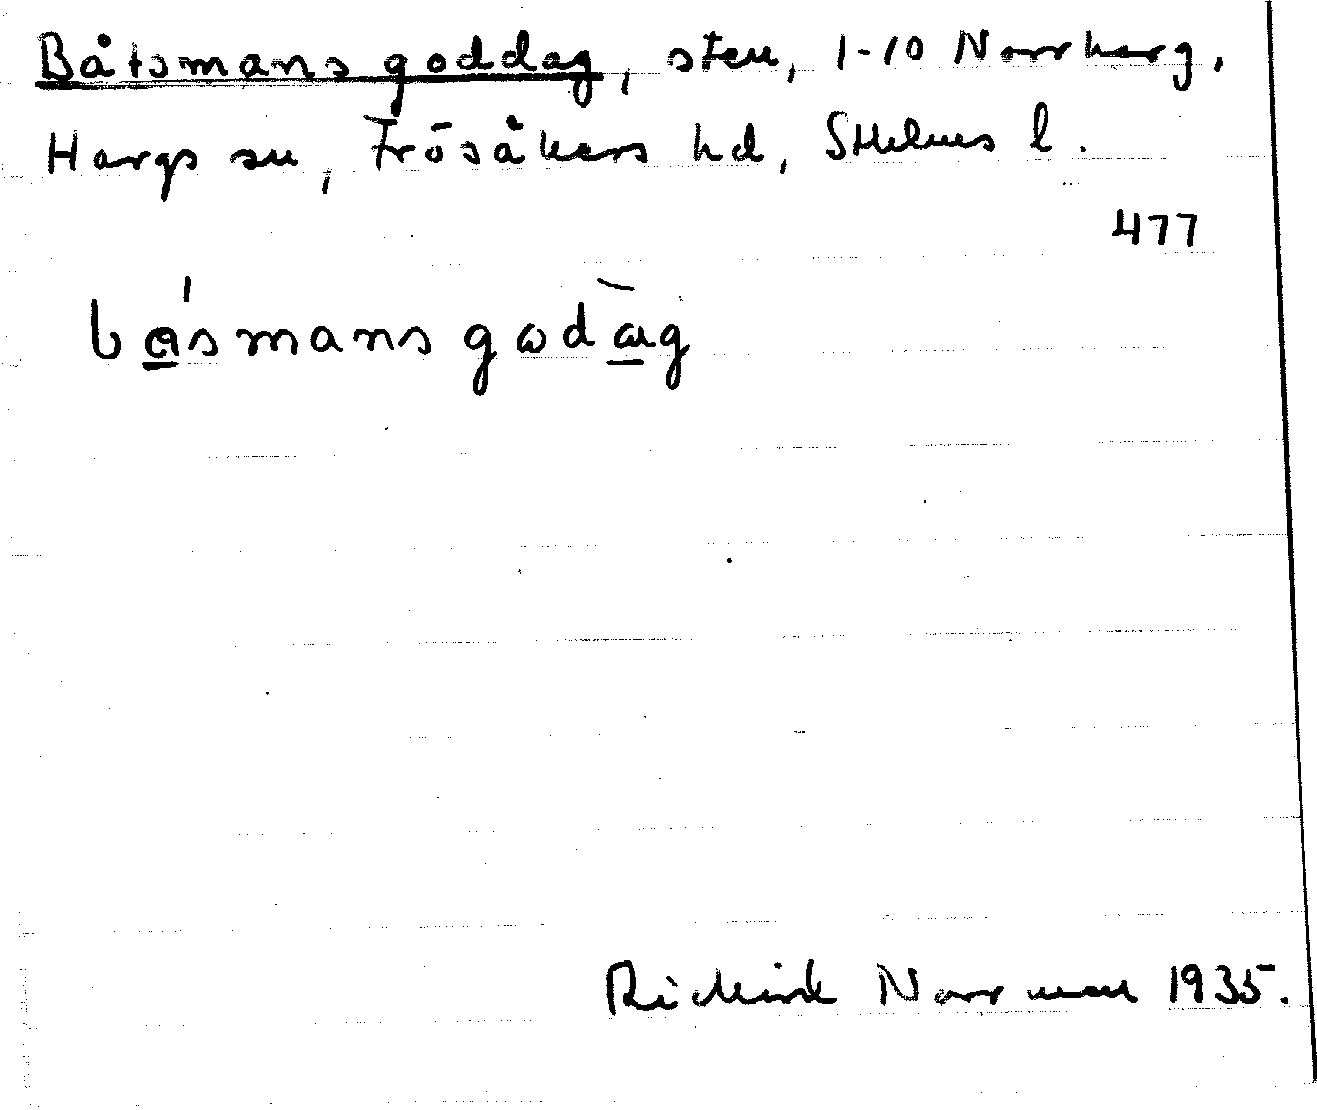 Båtsmans goddag, sten, 1-10 Norrharg,
Hargs sn, Frösåkers hd, Sthlms l.
477
båsmans godàg
Richard Norrman 1935.